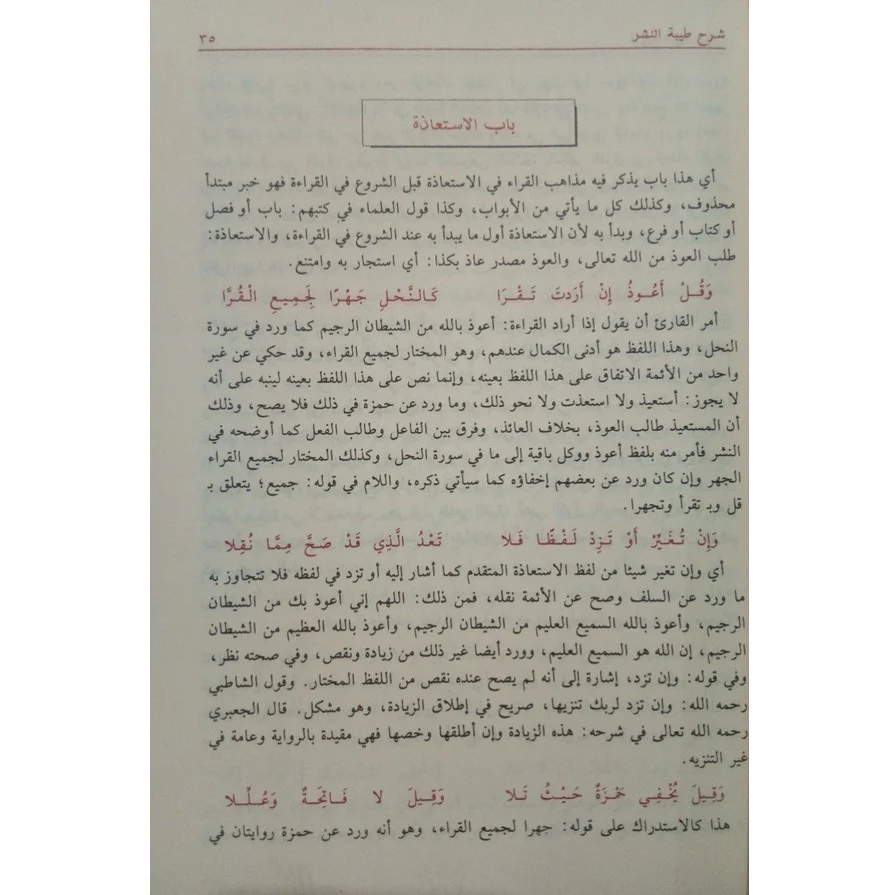 شرح طيبة النشر ٣٥
باب الاستعاذة
أي هذا باب يذكر فيه مذاهب القراء في الاستعاذة قبل الشروع في القراءة فهو خبر مبتدأ
محذوف، وكذلك كل ما يأتي من الأبواب، وكذا قول العلماء في كتبهم: باب أو فصل
أو كتاب أو فرع، وبدأ به لأن الاستعاذة أول ما يبدأ به عند الشروع في القراءة، والاستعاذة:
طلب العوذ من الله تعالى، والعوذ مصدر عاذ بكذا: أي استجار به وامتنع.
وَقُلْ أَعُوذُ إِنْ أَرَدتَ تَقْرَا كَالنَّحْلِ جَهْرًا لِجَمِيعِ الْقُرَّا
أمر القارئ أن يقول إذا أراد القراءة: أعوذ بالله من الشيطان الرجيم كما ورد في سورة
النحل، وهذا اللفظ هو أدنى الكمال عندهم، وهو المختار لجميع القراء، وقد حكي عن غير
واحد من الأئمة الاتفاق على هذا اللفظ بعينه، وإنما نص على هذا اللفظ بعينه لينبه على أنه
لا يجوز: أستعيذ ولا استعذت ولا نحو ذلك، وما ورد عن حمزة في ذلك فلا يصح، وذلك
أن المستعيذ طالب العوذ، بخلاف العائذ، وفرق بين الفاعل وطالب الفعل كما أوضحه في
النشر فأمر منه بلفظ أعوذ ووكل باقية إلى ما في سورة النحل، وكذلك المختار لجميع القراء
الجهر وإن كان ورد عن بعضهم إخفاؤه كما سيأتي ذكره، واللام في قوله: جميع؛ يتعلق بـ
قل وبـ تقرأ وتجهرا.
وَإِنْ تُغَيِّرْ أَوْ تَزِدْ لَفْظًا فَلا تَعْدُ الَّذِي قَدْ صَحَّ مِمَّا نُقِلا
أي وإن تغير شيئا من لفظ الاستعاذة المتقدم كما أشار إليه أو تزد في لفظه فلا تتجاوز به
ما ورد عن السلف وصح عن الأئمة نقله، فمن ذلك: اللهم إني أعوذ بك من الشيطان
الرجيم، وأعوذ بالله السميع العليم من الشيطان الرجيم، وأعوذ بالله العظيم من الشيطان
الرجيم، إن الله هو السميع العليم، وورد أيضا غير ذلك من زيادة ونقص، وفي صحته نظر،
وفي قوله: وإن تزد، إشارة إلى أنه لم يصح عنده نقص من اللفظ المختار. وقول الشاطبي
رحمه الله: وإن تزد لربك تنزيها، صريح في إطلاق الزيادة، وهو مشكل. قال الجعبري
رحمه الله تعالى في شرحه: هذه الزيادة وإن أطلقها وخصها فهي مقيدة بالرواية وعامة في
غير التنزيه.
وَقِيلَ يُخْفِي حَمْزَةُ حَيْثُ تَلا وَقِيلَ لا فَاتِحَةٌ وَعُلِّلا
هذا كالاستدراك على قوله: جهرا لجميع القراء، وهو أنه ورد عن حمزة روايتان في